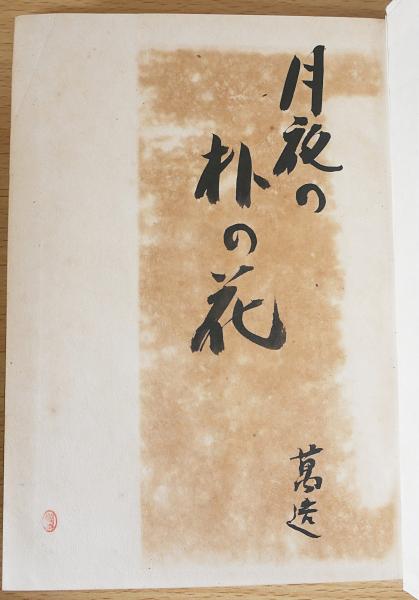 月夜の
朴の花
萬造